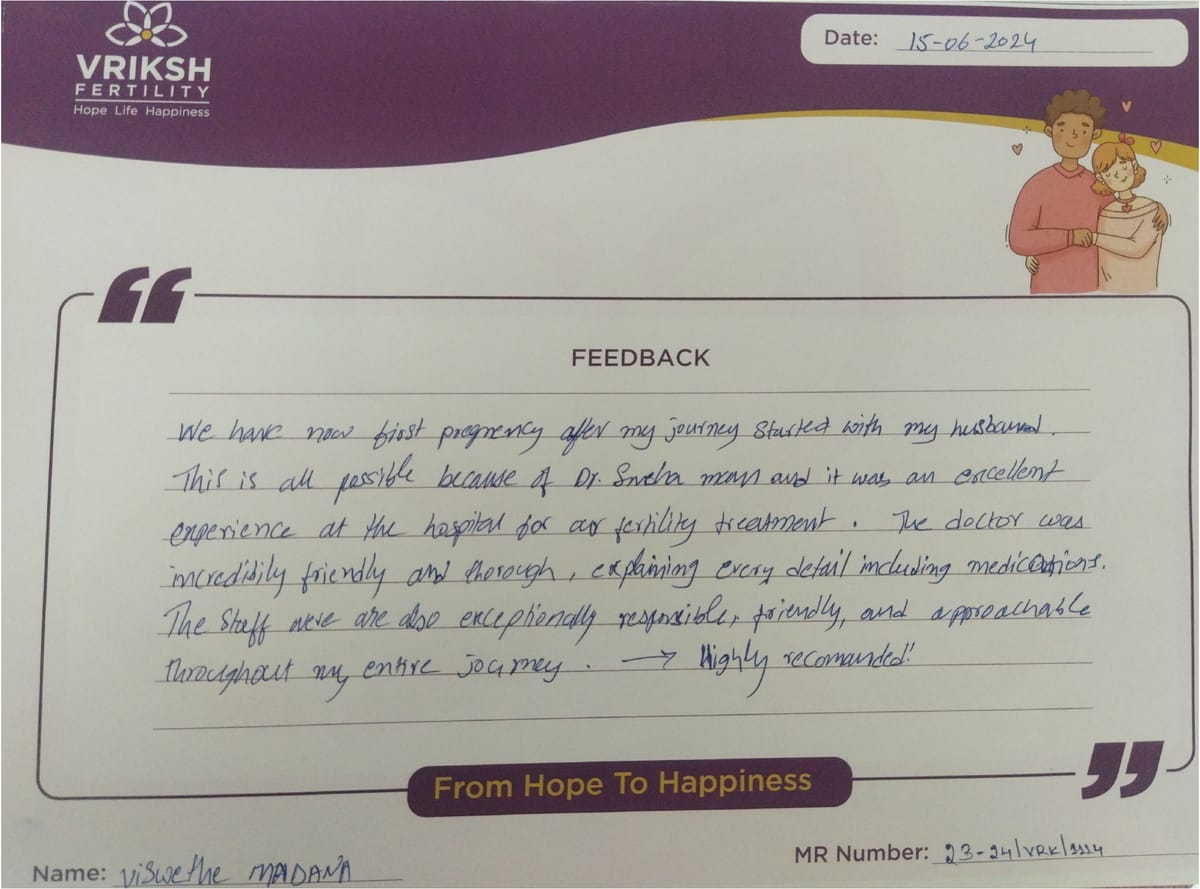 VRIKSH
FERTILITY
Hope Life Happiness
Date: 15-06-2024
FEEDBACK
We have now first pregnency after my journey started with my husband.
This is all possible because of Dr. Sneha mam and it was an excellent
experience at the hospital for our fertility treatment. The doctor was
incredibily friendly and thorough, explaining every detail including medications.
The Staff were are also exceptionally responsible, friendly, and approachable
throughout my entire journey. → Highly recomanded!
From Hope To Happiness
Name: Viswethe MADANA
MR Number: 23-24/VRK/1114